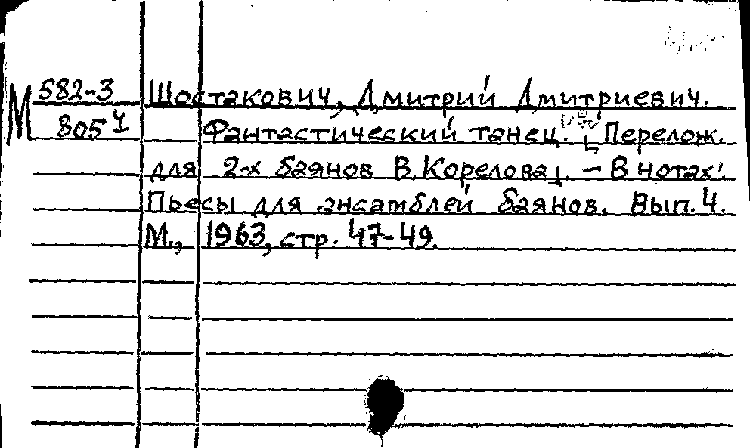 М 582-3 Шостакович, Дмитрий Дмитриевич.
805ч Фантастический танец. [Перелож.
для 2-х баянов В. Корелова]. – В нотах:
Пьесы для ансамблей баянов. Вып. 4.
М., 1963, стр. 47-49.